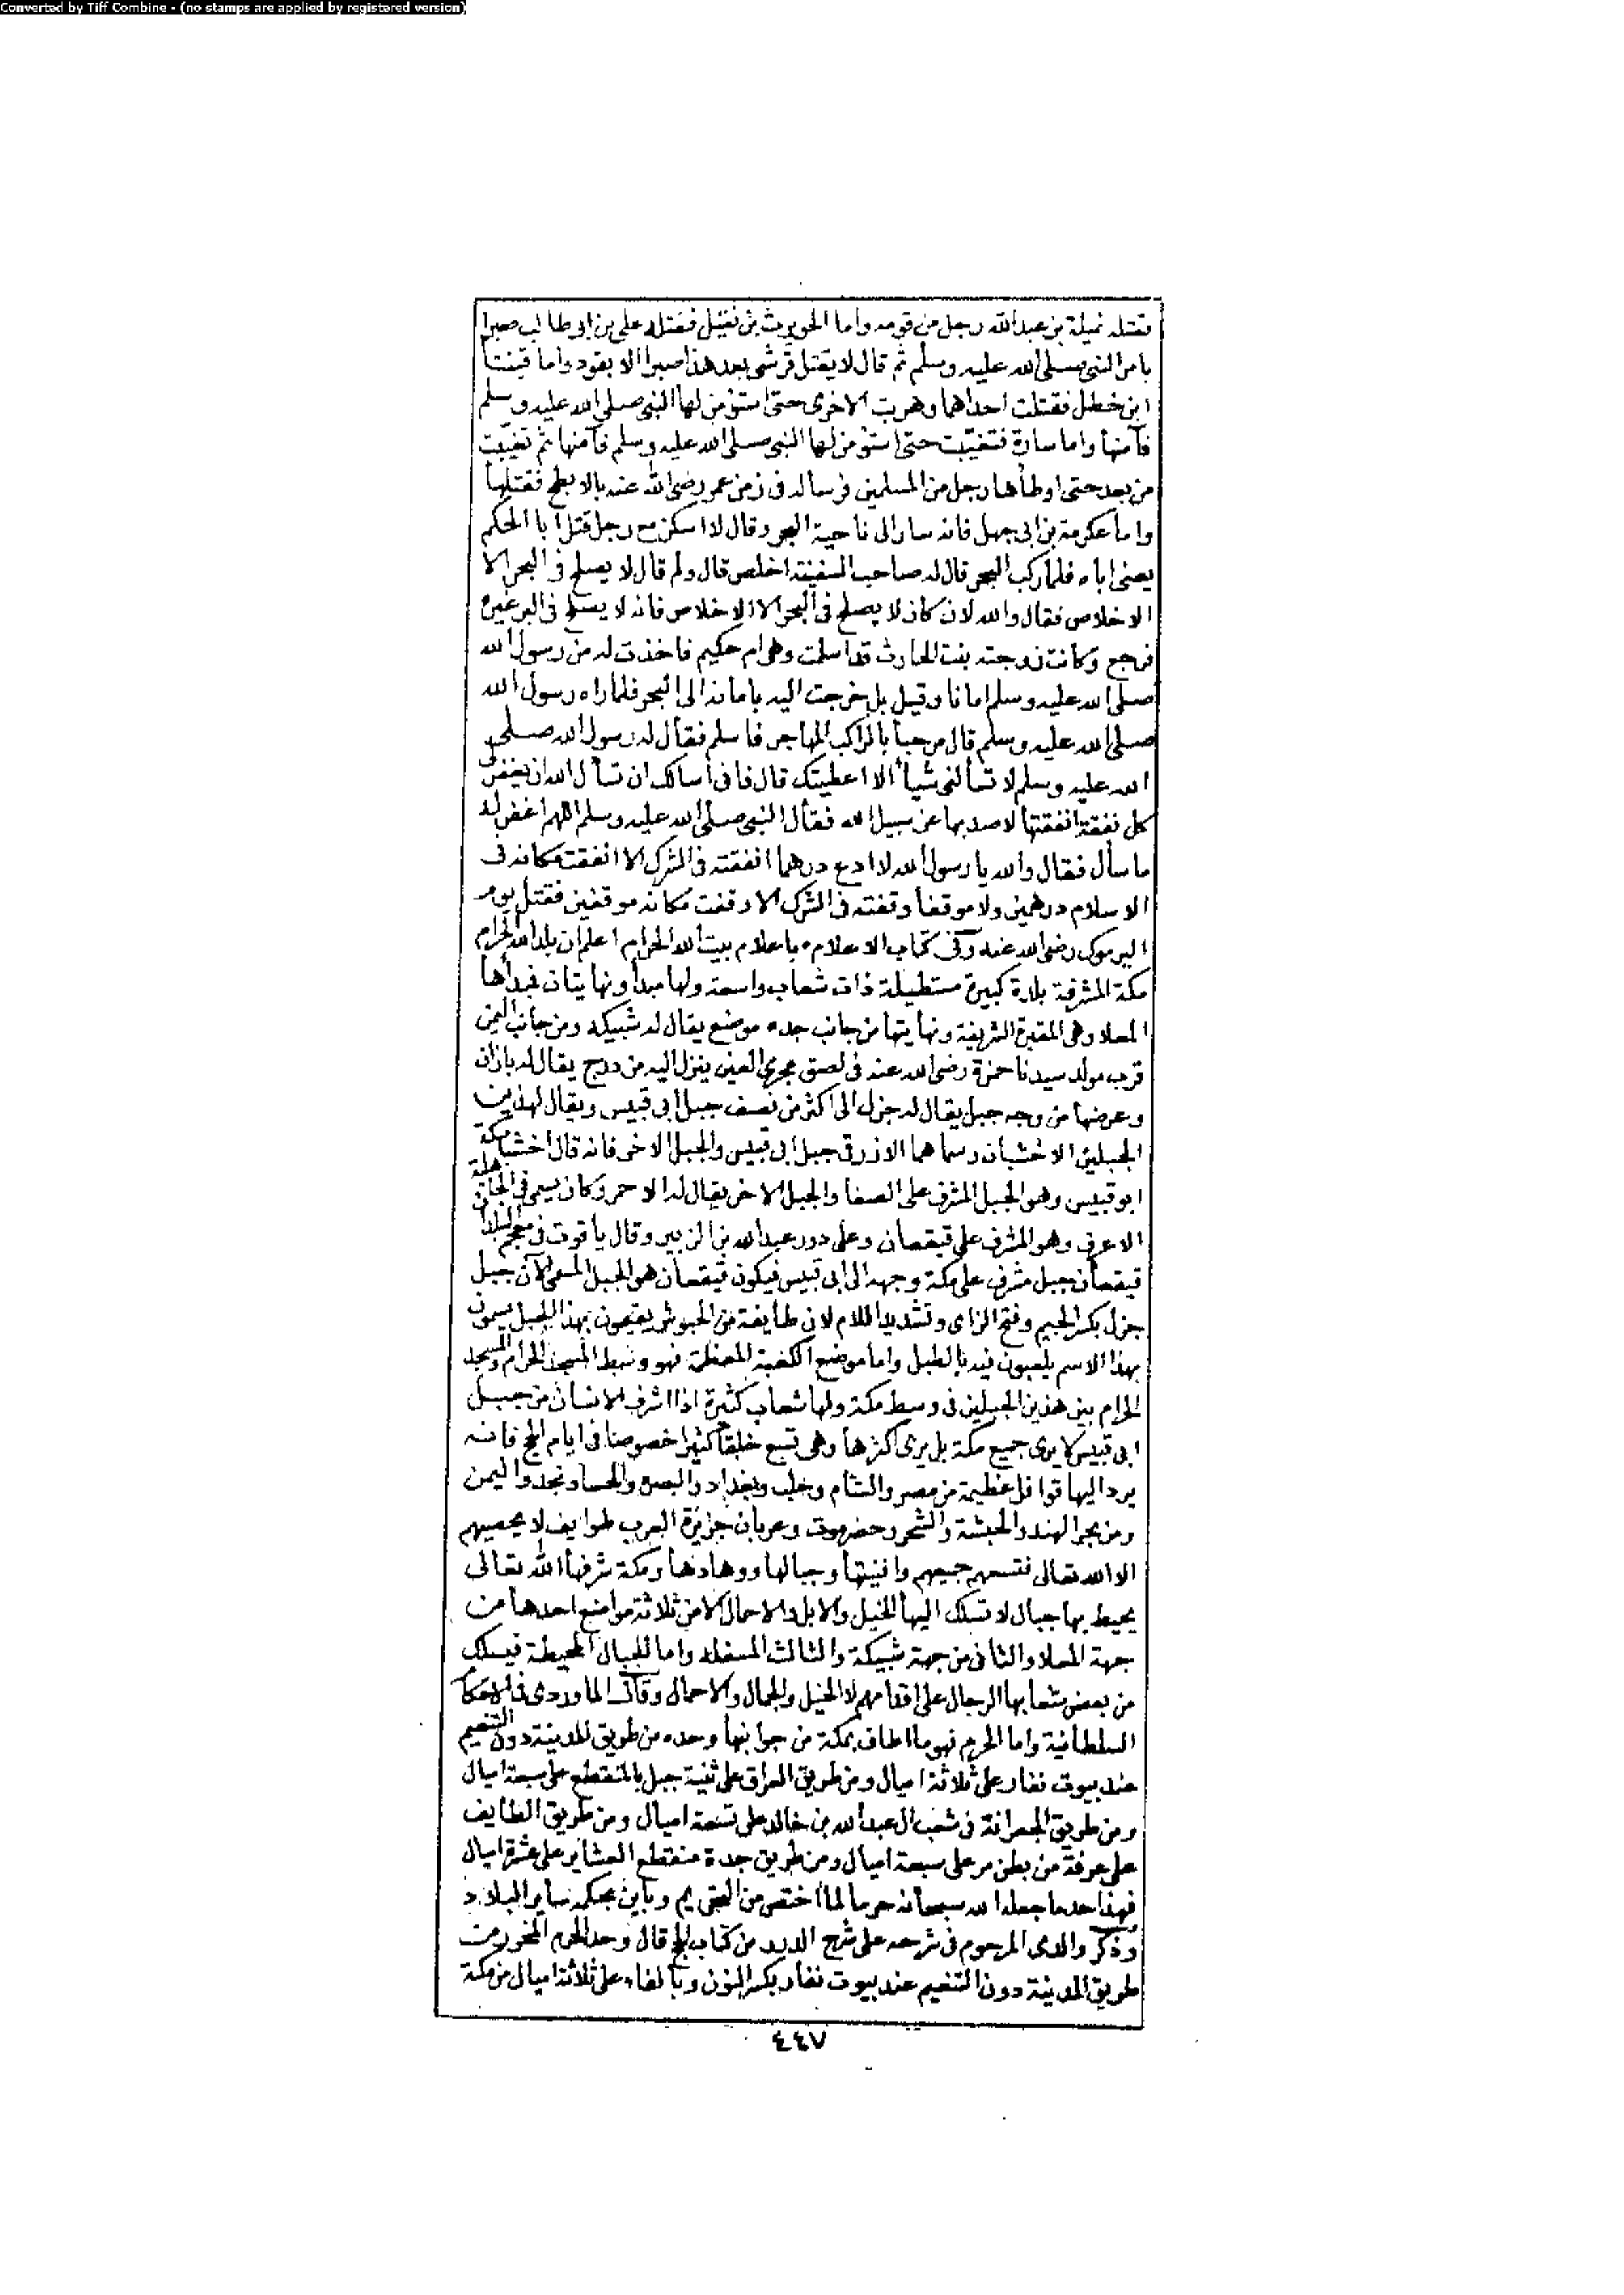 Converted by Tiff Combine - (no stamps are applied by registered version)
فقتله نميلة بن عبدالله رجل من قومه واما الحويرث بن نفيل فقتله علي بن ابي طالب صبرا
بامر النبي صلى الله عليه وسلم ثم قال لا يقتل قرشى بعد هذا صبرا الا بقود واما قينتا
ابن خطل فقتلت احداهما وهربت الاخرى حتى استؤمن لها النبي صلى الله عليه وسلم
فآمنها واما سارة فتغيبت حتى استؤمن لها النبي صلى الله عليه وسلم فآمنها ثم تغيبت
من بعد حتى اوطأها رجل من المسلمين فرسا له في زمن عمر رضى الله عنه بالابطح فقتلها
واما عكرمة بن ابى جهل فانه سار الى ناحية البحر وقال لا اسكن مع رجل قتل ابا الحكم
يعنى اباه فلما ركب البحر قال له صاحب السفينة اخلص قال ولم قال لا يصلح في البحر الا
الاخلاص فقال والله لان كان لا يصلح فى البحر الا الاخلاص فانه لا يصلح فى البر غيره
فرجع وكانت زوجته بنت الحارث قد اسلمت وهى ام حكيم فاخذت له من رسول الله
صلى الله عليه وسلم امانا وقيل بل خرجت اليه بامانه الى البحر فلما راه رسول الله
صلى الله عليه وسلم قال مرحبا بالراكب المهاجر فاسلم فقال له رسول الله صلى
الله عليه وسلم لا تسألنى شيأ الا اعطيتك قال فانى أسالك ان تسأل الله ان يغفر لى
كل نفقة انفقتها لاصد بها عن سبيل الله فقال النبي صلى الله عليه وسلم اللهم اغفر له
ما سأل فقال والله يا رسول الله لا ادع درهما انفقته فى الشرك الا انفقت مكانه فى
الاسلام درهمين ولا موقفا وقفته فى الشرك الا وقفت مكانه موقفين فقتل يوم
اليرموك رضى الله عنه وفى كتاب الاعلام باعلام بيت الله الحرام اعلم ان بلد الله الحرام
مكة المشرفة بلدة كبيرة مستطيلة ذات شعاب واسعة ولها مبدأ ونهايتان فمبدأها
المعلا وهى المقبرة الشريفة ونهايتها من جانب جده موضع يقال له شبيكه ومن جانب اليمن
قرب مولد سيدنا حمزة رضى الله عنه فى لصق مجرى العين ينزل اليه من درج يقال له بازان
وعرضها من وجه جبل يقال له جزل الى اكثر من نصف جبل ابى قبيس ويقال لهذين
الجبلين الاخشبان وسماهما الازرقى جبل ابى قبيس والجبل الاخر فانه قال اخشبا مكة
ابو قبيس وهو الجبل المشرف على الصفا والجبل الاخر يقال له الاحمر وكان يسمى فى الجاهلية
الاعرف وهو المشرف على قيقعان وعلى دور عبدالله بن الزبير وقال ياقوت فى معجم البلدان
قيقعان جبل مشرف على مكة وجهه الى ابى قبيس فيكون قيقعان هو الجبل المسمى الآن جبل
جزل بكسر الجيم وفتح الزاى وتشديد اللام لان طايفة من الحبوش يقيمون بهذا الجبل يسمون
بهذا الاسم يلعبون فيه بالطبل واما موضع الكعبة المعظمة فهو وسط المسجد الحرام والمسجد
الحرام بين هذين الجبلين فى وسط مكة ولها شعاب كثيرة اذا اشرف الانسان من جبل
ابى قبيس لا يرى جميع مكة بل يرى اكثرها وهى تسع خلقا كثيرا خصوصا فى ايام الحج فانه
يرد اليها قوافل عظيمة من مصر والشام وحلب وبغداد والبصرة والحسا ونجد واليمن
ومن بحر الهند والحبشة والشحر وحضرموت وعربان جزيرة العرب طوايف لا يحصيهم
الا الله تعالى فتسعهم جميعهم وافنيتها وجبالها ووهادها ومكة شرفها الله تعالى
يحيط بها جبال لا تسلك اليها الخيل والابل والاحمال الا من ثلاثة مواضع احدها من
جهة المعلا والثانى من جهة شبيكة والثالث المسفله واما الجبال المحيطة فيسلك
من بعض شعابها الرجال على اقدامهم لا الخيل والجمال والاحمال وقال الماوردى فى الاحكام
السلطانية واما الحرم فهو ما اطاف بمكة من جوانبها وحده من طريق المدينة دون التنعيم
عند بيوت نفار على ثلاثة اميال ومن طريق العراق على ثنية جبل بالمنقطع على سبعة اميال
ومن طريق الجعرانة فى شعب ال عبدالله بن خالد على تسعة اميال ومن طريق الطايف
على عرفة من بطن مر على سبعة اميال ومن طريق جدة منقطع العشاير على عشرة اميال
فهذا حد ما جعله الله سبحانه حرما لما اختص من التحريم وباين بحكمه ساير البلاد
وذكر والدى المرحوم فى شرحه على شرح الدرر من كتاب الحج قال وحد الحرم من
طريق المدينة دون التنعيم عند بيوت نفار بكسر النون وبالفاء على ثلاثة اميال من مكة
٤٤٧